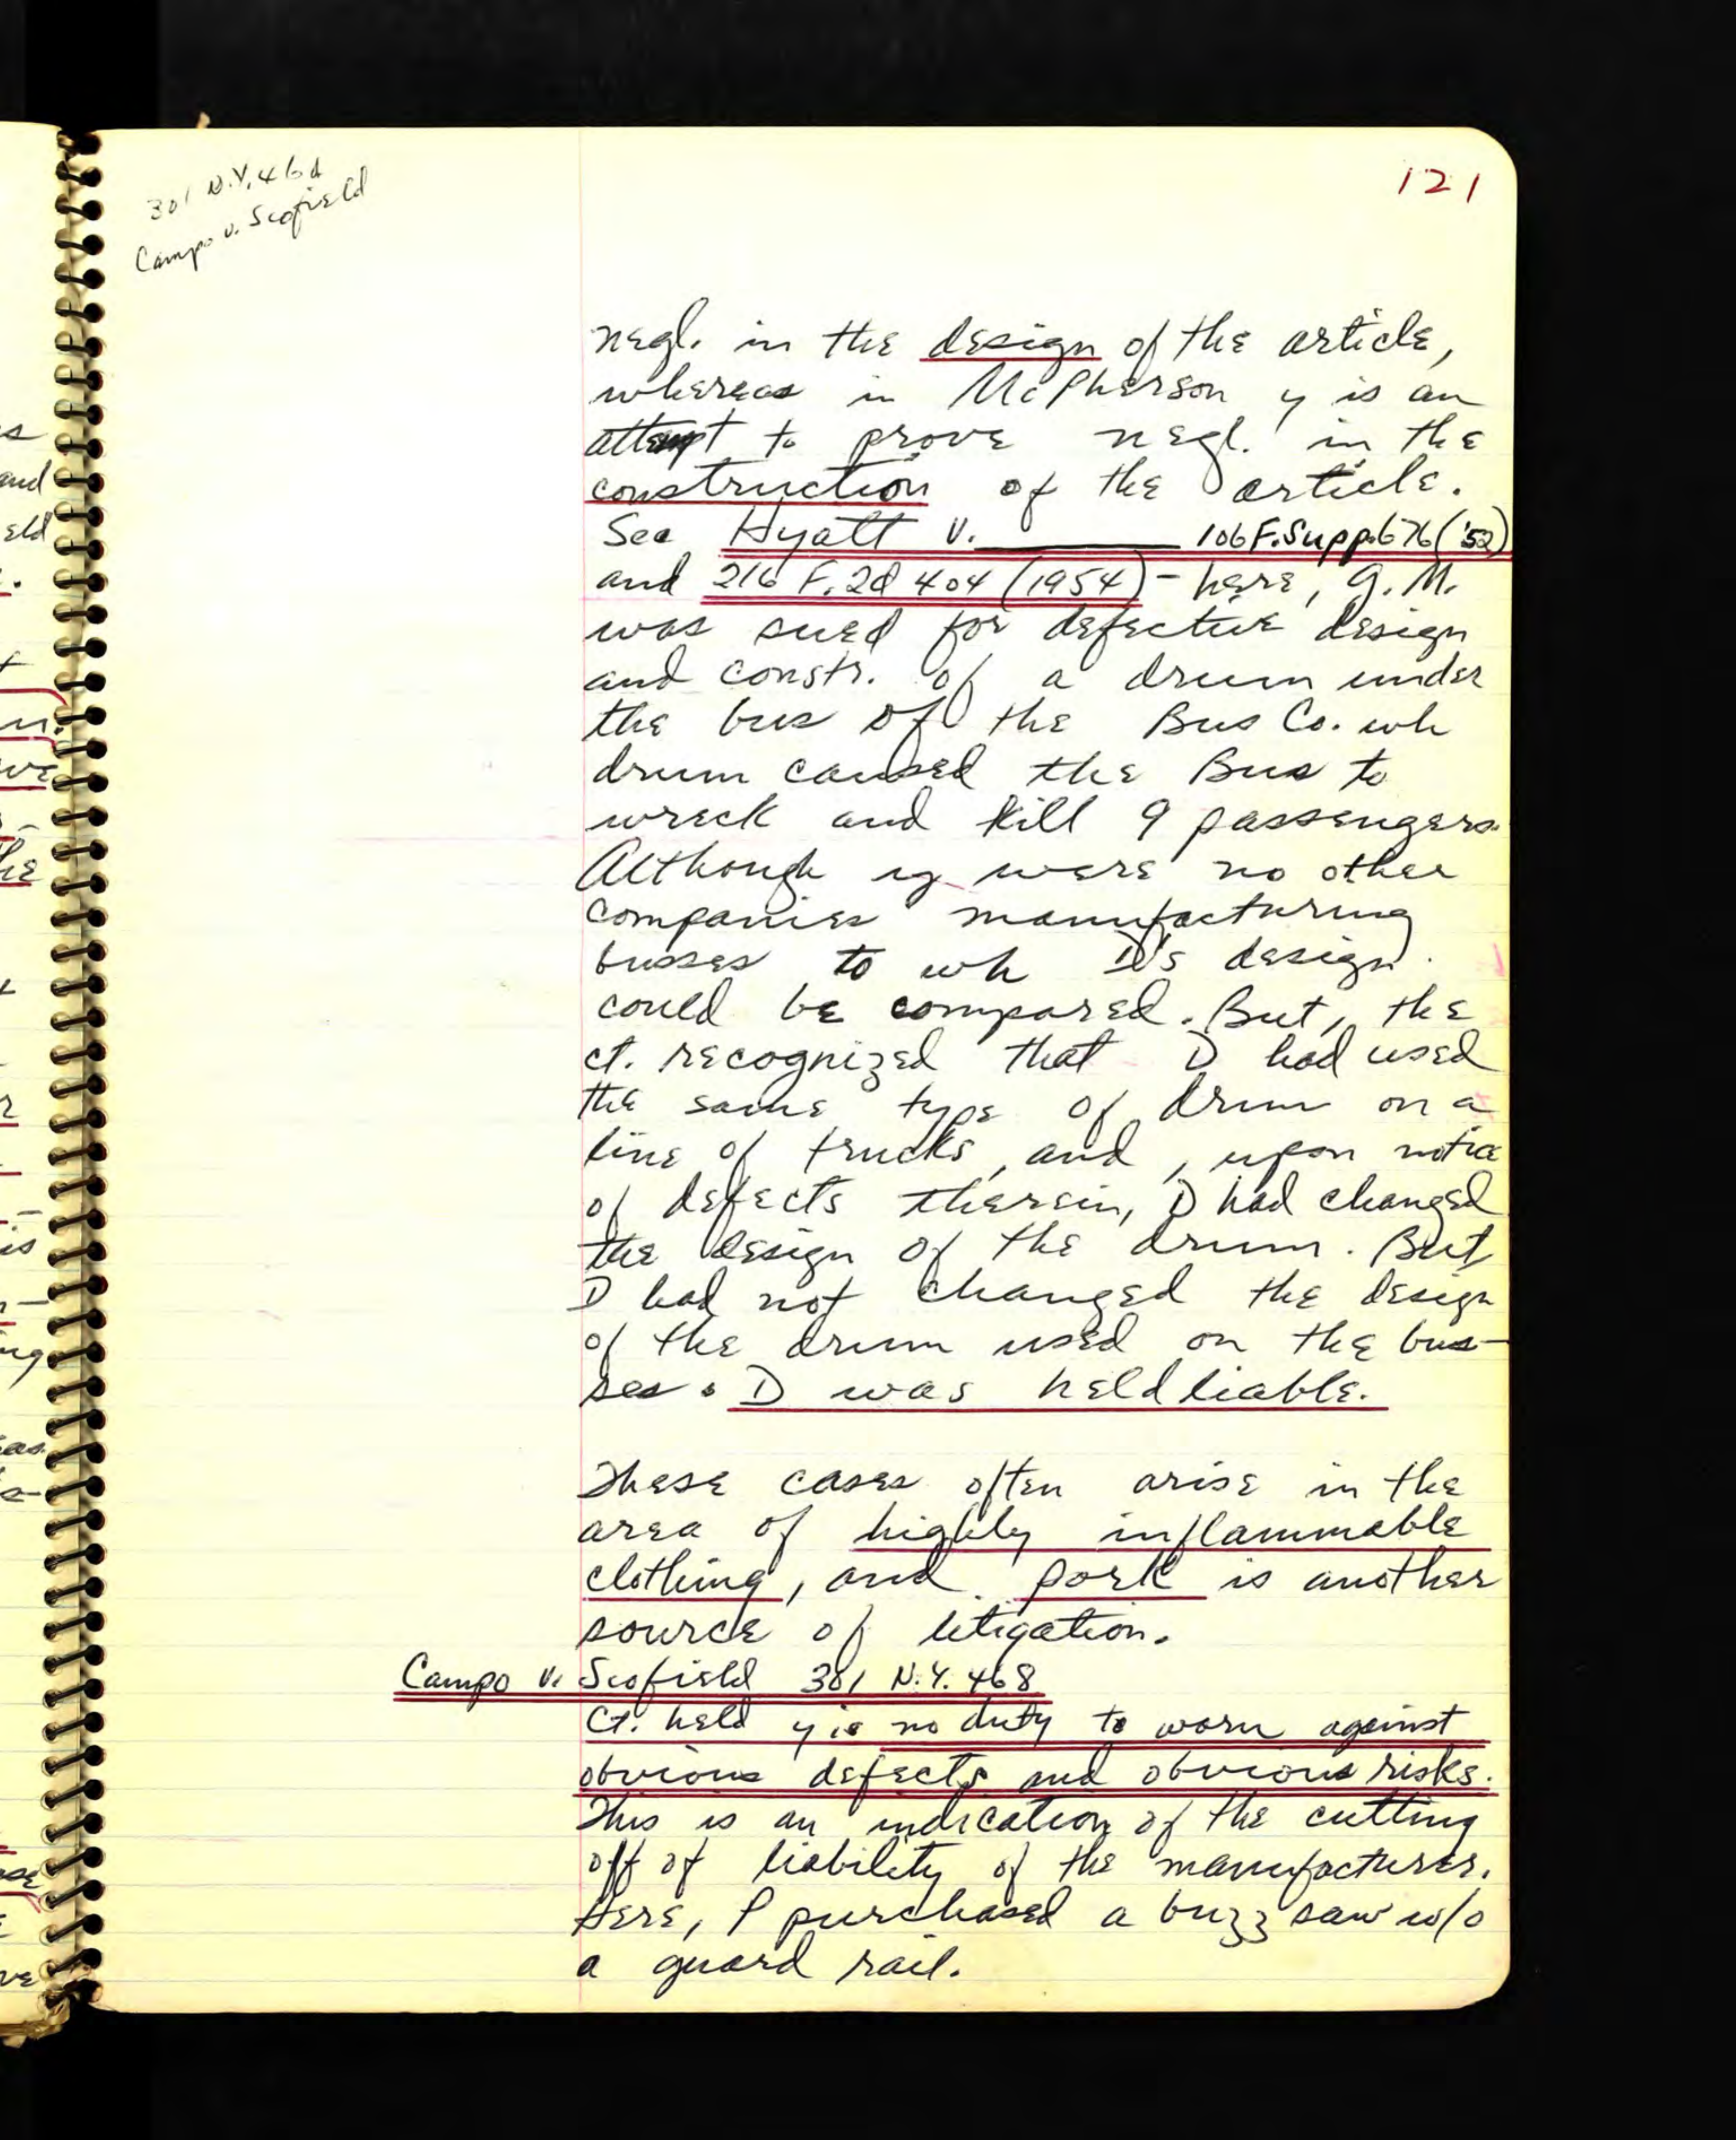 121
301 N.Y. 468
Campo v. Scofield
negl. in the design of the article,
whereas in McPherson y is an
attempt to prove negl. in the
construction of the article.
See Hyatt v. ________ 106 F.Supp. 676 ('52)
and 216 F.2d 404 (1954) - here, G.M.
was sued for defective design
and constr. of a drum under
the bus of the Bus Co. wh
drum caused the Bus to
wreck and kill 9 passengers.
Although y were no other
companies manufacturing
busses to wh D's design
could be compared. But, the
ct. recognized that D had used
the same type of drum on a
line of trucks, and, upon notice
of defects therein, D had changed
the design of the drum. But
D had not changed the design
of the drum used on the bus-
ses. D was held liable.
These cases often arise in the
area of highly inflammable
clothing, and pork is another
source of litigation.
Campo v. Scofield 301 N.Y. 468
Ct. held y is no duty to warn against
obvious defects and obvious risks.
This is an indication of the cutting
off of liability of the manufacturer.
Here, P purchased a buzz saw w/o
a guard rail.